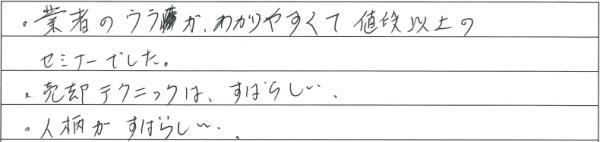 ・業者のウラが、わかりやすくて 値段以上の
セミナーでした。
・売却テクニックは、すばらしい、
・人柄がすばらしい。